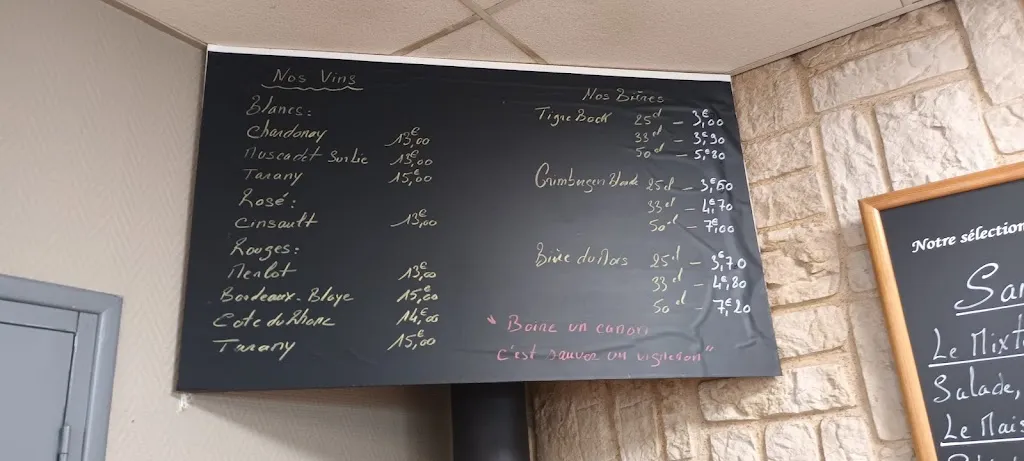 Nos Vins
Blancs:
Chardonay 13€,00
Muscadet Sur lie 13€,00
Tarany 15€,00
Rosé:
Cinsault 13€,00
Rouges:
Merlot 13€,00
Bordeaux-Blaye 15€,00
Cote du Rhone 14€,00
Tarany 15€,00
Nos Bières
Tigre Bock 25cl - 3€,00
33cl - 3€,90
50cl - 5€,80
Grimbergen Blonde 25cl - 3€,60
33cl - 4€,70
50cl - 7€,00
Bière du Mois 25cl - 3€,70
33cl - 4€,80
50cl - 7€,20
" Boire un canon
c'est sauver un vigneron"
Notre sélection
Le Mixt
Salade,
Le Mais